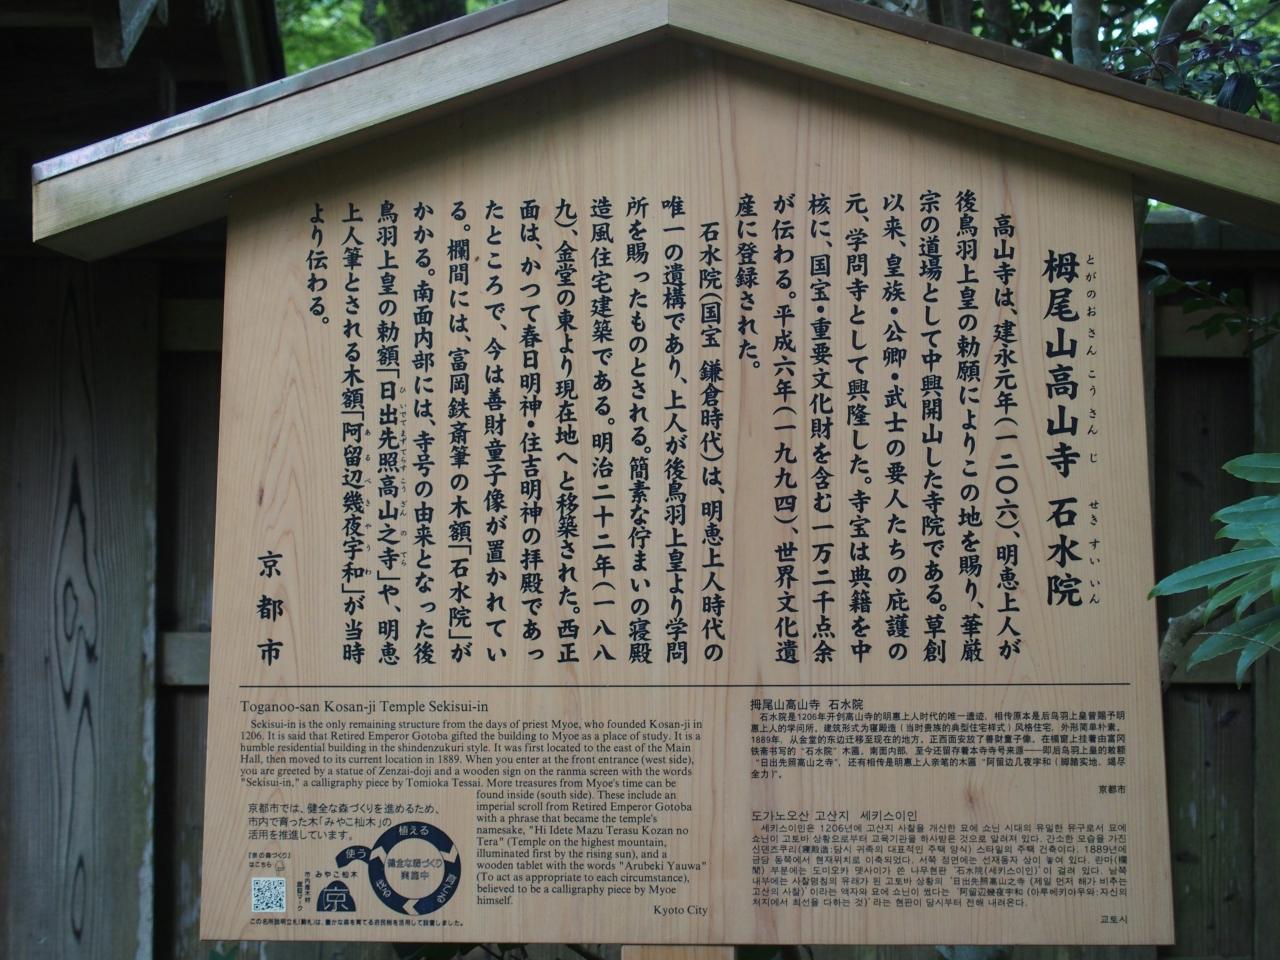 栂尾山高山寺 石水院
とがのおさんこうさんじ せきすいいん
高山寺は、建永元年(一二〇六)、明恵上人が
後鳥羽上皇の勅願によりこの地を賜り、華厳
宗の道場として中興開山した寺院である。草創
以来、皇族・公卿・武士の要人たちの庇護の
元、学問寺として興隆した。寺宝は典籍を中
核に、国宝・重要文化財を含む一万二千点余
が伝わる。平成六年(一九九四)、世界文化遺
産に登録された。
石水院(国宝 鎌倉時代)は、明恵上人時代の
唯一の遺構であり、上人が後鳥羽上皇より学問
所を賜ったものとされる。簡素な佇まいの寝殿
造風住宅建築である。明治二十二年(一八八
九)、金堂の東より現在地へと移築された。西正
面は、かつて春日明神・住吉明神の拝殿であっ
たところで、今は善財童子像が置かれてい
る。欄間には、富岡鉄斎筆の木額「石水院」が
かかる。南面内部には、寺号の由来となった後
鳥羽上皇の勅額「日出先照高山之寺」や、明恵
上人筆とされる木額「阿留辺幾夜宇和」が当時
より伝わる。
京都市
Toganoo-san Kosan-ji Temple Sekisui-in
Sekisui-in is the only remaining structure from the days of priest Myoe, who founded Kosan-ji in
1206. It is said that Retired Emperor Gotoba gifted the building to Myoe as a place of study. It is a
humble residential building in the shindenzukuri style. It was first located to the east of the Main
Hall, then moved to its current location in 1889. When you enter at the front entrance (west side),
you are greeted by a statue of Zenzai-doji and a wooden sign on the ranma screen with the words
"Sekisui-in," a calligraphy piece by Tomioka Tessai. More treasures from Myoe's time can be
found inside (south side). These include an
imperial scroll from Retired Emperor Gotoba
with a phrase that became the temple's
namesake, "Hi Idete Mazu Terasu Kozan no
Tera" (Temple on the highest mountain,
illuminated first by the rising sun), and a
wooden tablet with the words "Arubeki Yauwa"
(To act as appropriate to each circumstance),
believed to be a calligraphy piece by Myoe
himself.
Kyoto City
京都市では、健全な森づくりを進めるため、
市内で育った木「みやこ杣木」の
活用を推進しています。
「京の森づくり」
はこちら
植える
使う
健全な森づくり
実施中
みやこ杣木
京
この名所説明立札(駒札)は、豊かな森を育てる府民税を活用して設置しました。
拇尾山高山寺 石水院
石水院是1206年开创高山寺的明惠上人时代的唯一遗迹，相传原本是后鸟羽上皇曾赐予明
惠上人的学问所。建筑形式为寝殿造（当时贵族的典型住宅样式）风格住宅，外形简单朴素。
1889年，从金堂的东边迁移至现在的地方，正西面安放了善财童子像。在楣窗上挂着由富冈
铁斋书写的“石水院”木匾。南面内部，至今还留存着本寺寺号来源——即后鸟羽上皇的敕额
“日出先照高山之寺”，还有相传是明惠上人亲笔的木匾“阿留边几夜宇和（脚踏实地、竭尽
全力）”。
京都市
도가노오산 고산지 세키스이인
세키스이인은 1206년에 고산지 사찰을 개산한 묘에 쇼닌 시대의 유일한 유구로서 묘에
쇼닌이 고토바 상황으로부터 교육기관을 하사받은 것으로 알려져 있다. 간소한 모습을 가진
신덴즈쿠리(寝殿造:당시 귀족의 대표적인 주택 양식) 스타일의 주택 건축이다. 1889년에
금당 동쪽에서 현재위치로 이축되었다. 서쪽 정면에는 선재동자 상이 놓여 있다. 란마(欄
間) 부분에는 도미오카 뎃사이가 쓴 나무현판 '石水院(세키스이인)'이 걸려 있다. 남쪽
내부에는 사찰명칭의 유래가 된 고토바 상황의 '日出先照高山之寺 (제일 먼저 해가 비추는
고산의 사찰)' 이라는 액자와 묘에 쇼닌이 썼다는 '阿留辺幾夜宇和 (아루베키야우와:자신의
처지에서 최선을 다하는 것)' 라는 현판이 당시부터 전해 내려온다.
교토시